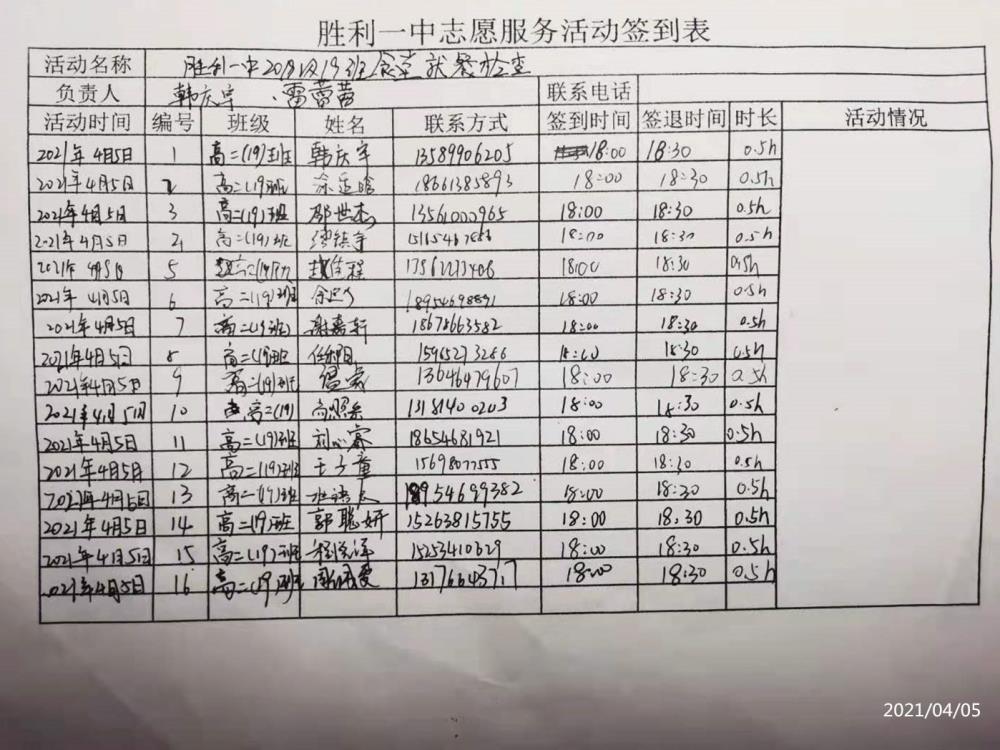 胜利一中志愿服务活动签到表
活动名称 胜利一中20级19班食堂就餐检查
负责人 韩庆宇、雷蕾苗 联系电话
活动时间 编号 班级 姓名 联系方式 签到时间 签退时间 时长 活动情况
2021年4月5日 1 高二(19)班 韩庆宇 13589906205 18:00 18:30 0.5h
2021年4月5日 2 高二(19)班 18661385893 18:00 18:30 0.5h
2021年4月5日 3 高二(19)班 邵世杰 13561000965 18:00 18:30 0.5h
2021年4月5日 4 高二(19)班 18:00 18:30 0.5h
2021年4月5日 5 高二(19) 18:00 18:30 0.5h
2021年4月5日 6 高二(19)班 18954698891 18:00 18:30 0.5h
2021年4月5日 7 高二(19)班 谢嘉轩 18678663582 18:00 18:30 0.5h
2021年4月5日 8 高二(19)班 15965273286 18:00 18:30 0.5h
2021年4月5日 9 高二(19)班 13646479607 18:00 18:30 0.5h
2021年4月5日 10 高二(19) 13181400203 18:00 18:30 0.5h
2021年4月5日 11 高二(19)班 刘心睿 18654681921 18:00 18:30 0.5h
2021年4月5日 12 高二(19)班 王子童 15698077555 18:00 18:30 0.5h
2021年4月5日 13 高二(19)班 18954699382 18:00 18:30 0.5h
2021年4月5日 14 高二(19)班 郭聪妍 15263815755 18:00 18:30 0.5h
2021年4月5日 15 高二(19)班 15253410629 18:00 18:30 0.5h
2021年4月5日 16 高二(19)班 13176643717 18:00 18:30 0.5h
2021/04/05